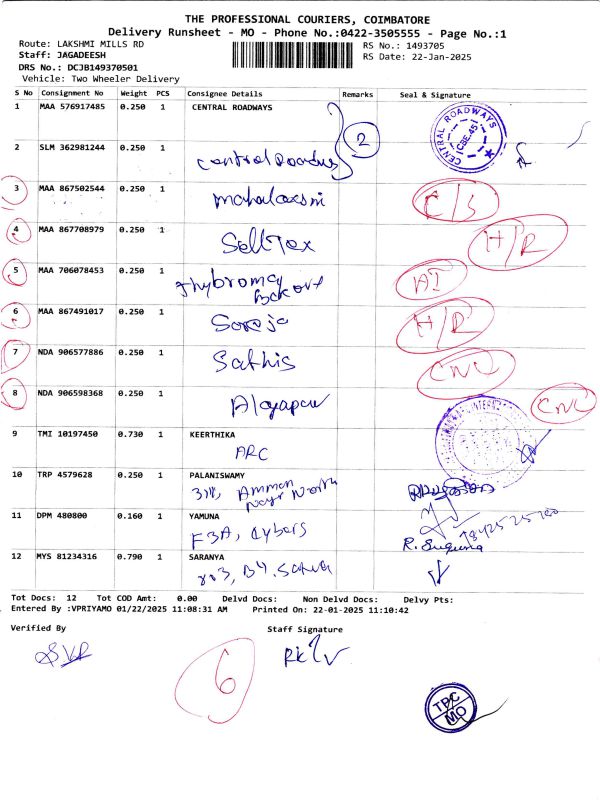 THE PROFESSIONAL COURIERS, COIMBATORE
Delivery Runsheet - MO - Phone No.:0422-3505555 - Page No.:1
Route: LAKSHMI MILLS RD
RS No.: 1493705
Staff: JAGADEESH
RS Date: 22-Jan-2025
DRS No.: DCJB149370501
Vehicle: Two Wheeler Delivery
S No Consignment No Weight PCS Consignee Details Remarks Seal & Signature
1 MAA 576917485 0.250 1 CENTRAL ROADWAYS
2
CENTRAL ROADWAYS CBE.45
2 SLM 362981244 0.250 1
Central Roadways
3 MAA 867502544 0.250 1
Mahalaxmi C/S
4 MAA 867708979 0.250 1
Sell Tax H/R
5 MAA 706078453 0.250 1
AI
6 MAA 867491017 0.250 1
Saroja H/R
7 NDA 906577886 0.250 1
Sathis CNC
8 NDA 906598368 0.250 1
CNC
9 TMI 10197450 0.730 1 KEERTHIKA
ARC
10 TRP 4579628 0.250 1 PALANISWAMY
Amman
Nagr North
11 DPM 480800 0.160 1 YAMUNA
F3A,
R. Suguna
12 MYS 81234316 0.790 1 SARANYA
Tot Docs: 12 Tot COD Amt: 0.00 Delvd Docs: Non Delvd Docs: Delvy Pts:
Entered By :VPRIYAMO 01/22/2025 11:08:31 AM Printed On: 22-01-2025 11:10:42
Verified By Staff Signature
SVP
6
TPC
MO